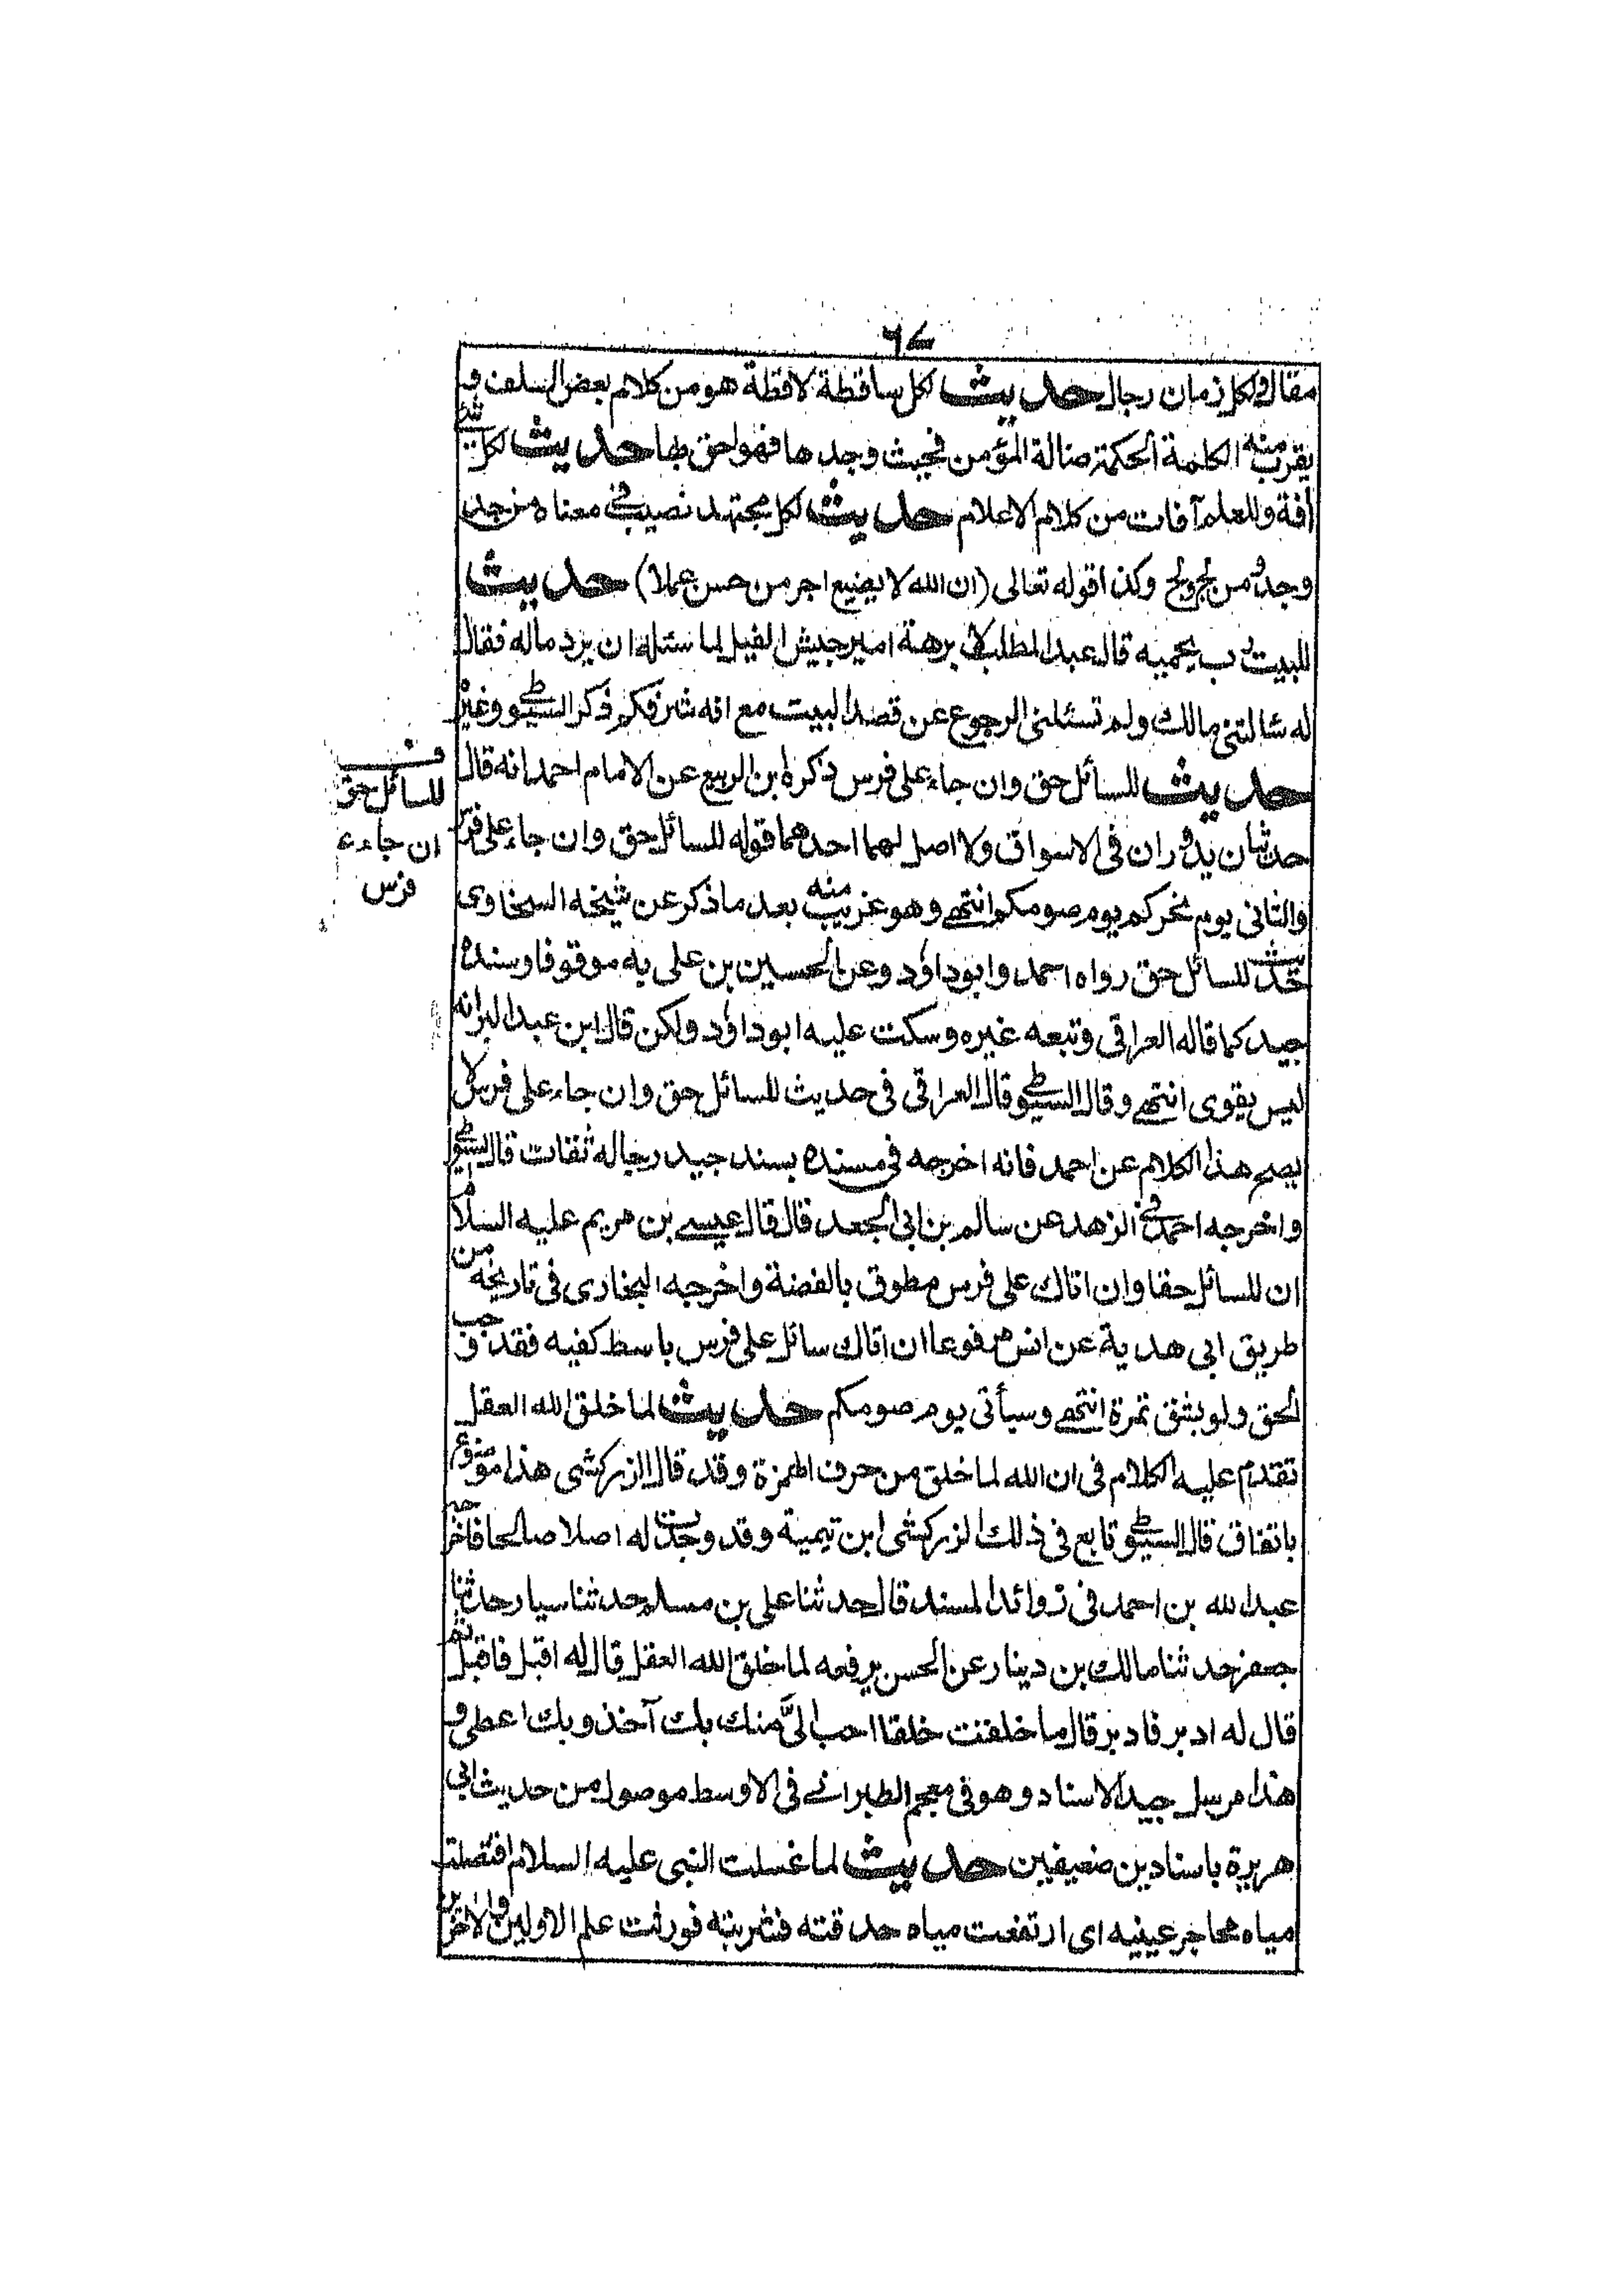 ٦٧
مقال ولكل زمان رجال حديث لكل ساقطة لاقطة هو من كلام بعض السلف و
يقرب منه الكلمة الحكمة ضالة المؤمن فحيث وجدها فهو احق بها حديث لكل شئ
آفة وللعلم آفات من كلام الاعلام حديث لكل مجتهد نصيب في معناه من جد
وجد ومن لج ولج وكذا قوله تعالى (ان الله لا يضيع اجر من حسن عملا) حديث
للبيت رب يحميه قال عبد المطلب لابرهة امير جيش الفيل لما سئله ان يرد ماله فقال
له سالتنى مالك ولم تسئلنى الرجوع عن قصد البيت مع انه شرفكم ذكر السيوطي وغيره
حديث للسائل حق وان جاء على فرس ذكره ابن الربيع عن الامام احمد انه قال
حديثان يدوران فى الاسواق ولا اصل لهما احدهما قوله للسائل حق وان جاء على فرس
والثانى يوم نحركم يوم صومكم انتهى وهو غريب منه بعد ما ذكر عن شيخه السخاوى
حديث للسائل حق رواه احمد وابو داؤد وعن الحسين بن على به موقوفا وسنده
جيد كما قاله العراقى وتبعه غيره وسكت عليه ابو داؤد ولكن قال ابن عبد البر انه
ليس بقوى انتهى وقال السيوطي وقال العراقى فى حديث للسائل حق وان جاء على فرس لا
يصح هذا الكلام عن احمد فانه اخرجه فى مسنده بسند جيد رجاله ثقات قال السيوطي
واخرجه احمد في الزهد عن سالم بن ابى الجعد قال قال عيسى بن مريم عليه السلام
ان للسائل حقا وان اتاك على فرس مطوق بالفضة واخرجه البخارى فى تاريخه من
طريق ابى هدية عن انس مرفوعا ان اتاك سائل على فرس باسط كفيه فقد وجب
الحق ولو بشق تمرة انتهى وسيأتى يوم صومكم حديث لما خلق الله العقل
تقدم عليه الكلام فى ان الله لما خلق من حرف الهمزة وقد قال الزركشى هذا موضوع
باتفاق قال السيوطي تابع فى ذلك الزركشى ابن تيمية وقد وجدت له اصلا صالحا فاخرجه
عبد الله بن احمد فى زوائد المسند قال حدثنا على بن مسلم حدثنا سيار حدثنا
جعفر حدثنا مالك بن دينار عن الحسن يرفعه لما خلق الله العقل قال له اقبل فاقبل ثم
قال له ادبر فادبر قال ما خلقت خلقا احب الىّ منك بك آخذ وبك اعطى و
هذا مرسل جيد الاسناد وهو فى معجم الطبرانے فى الاوسط موصول من حديث ابى
هريرة باسنادين ضعيفين حديث لما غسلت النبى عليه السلام اقتصلت
مياه محاجر عينيه اى ارتفعت مياه حدقته فشربته فورثت علم الاولين والآخرين
ف
للسائل حق
ان جاء ء
فرس